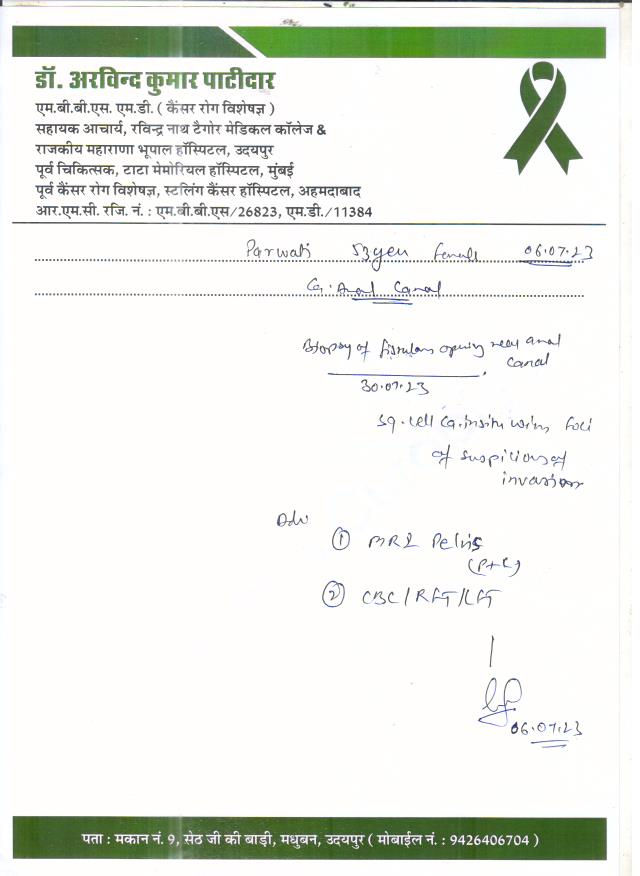 डॉ. अरविन्द कुमार पाटीदार
एम.बी.बी.एस. एम.डी. ( कैंसर रोग विशेषज्ञ )
सहायक आचार्य, रविन्द्र नाथ टैगोर मेडिकल कॉलेज &
राजकीय महाराणा भूपाल हॉस्पिटल, उदयपुर
पूर्व चिकित्सक, टाटा मेमोरियल हॉस्पिटल, मुंबई
पूर्व कैंसर रोग विशेषज्ञ, स्टलिंग कैंसर हॉस्पिटल, अहमदाबाद
आर.एम.सी. रजि. नं. : एम.बी.बी.एस/26823, एम.डी./11384
Parwati 53yen female 06.07.23
Ca. Anal Canal
Biopsy of fistulous opening near anal
canal
30.07.23
sq. cell Ca. insitu with foci
of suspicious of
invasion
Adv
① MRI Pelvis
(P+C)
② CBC/RFT/LFT
06.07.23
पता : मकान नं. 9, सेठ जी की बाड़ी, मधुबन, उदयपुर ( मोबाईल नं. : 9426406704 )